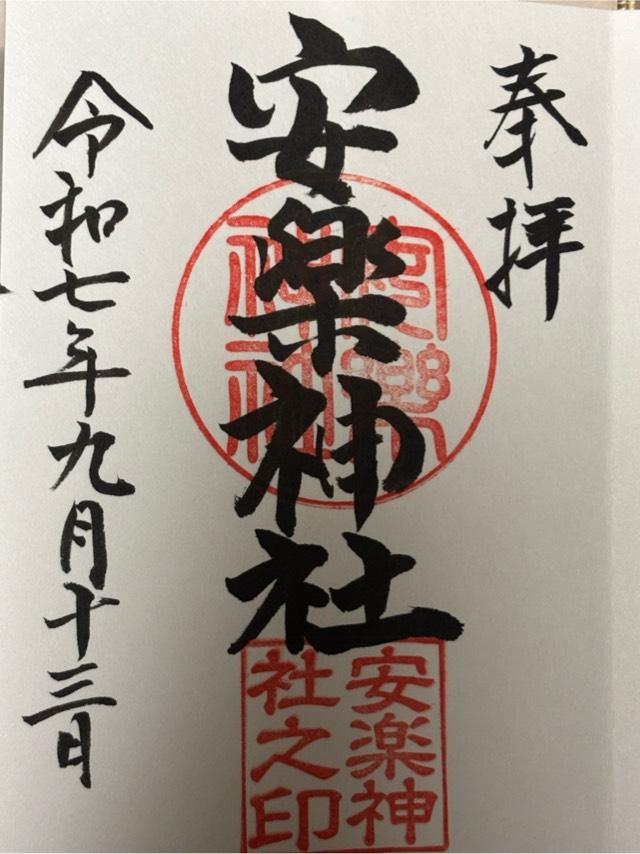 奉拝
安楽神社
安楽神
社之印
令和七年九月十三日